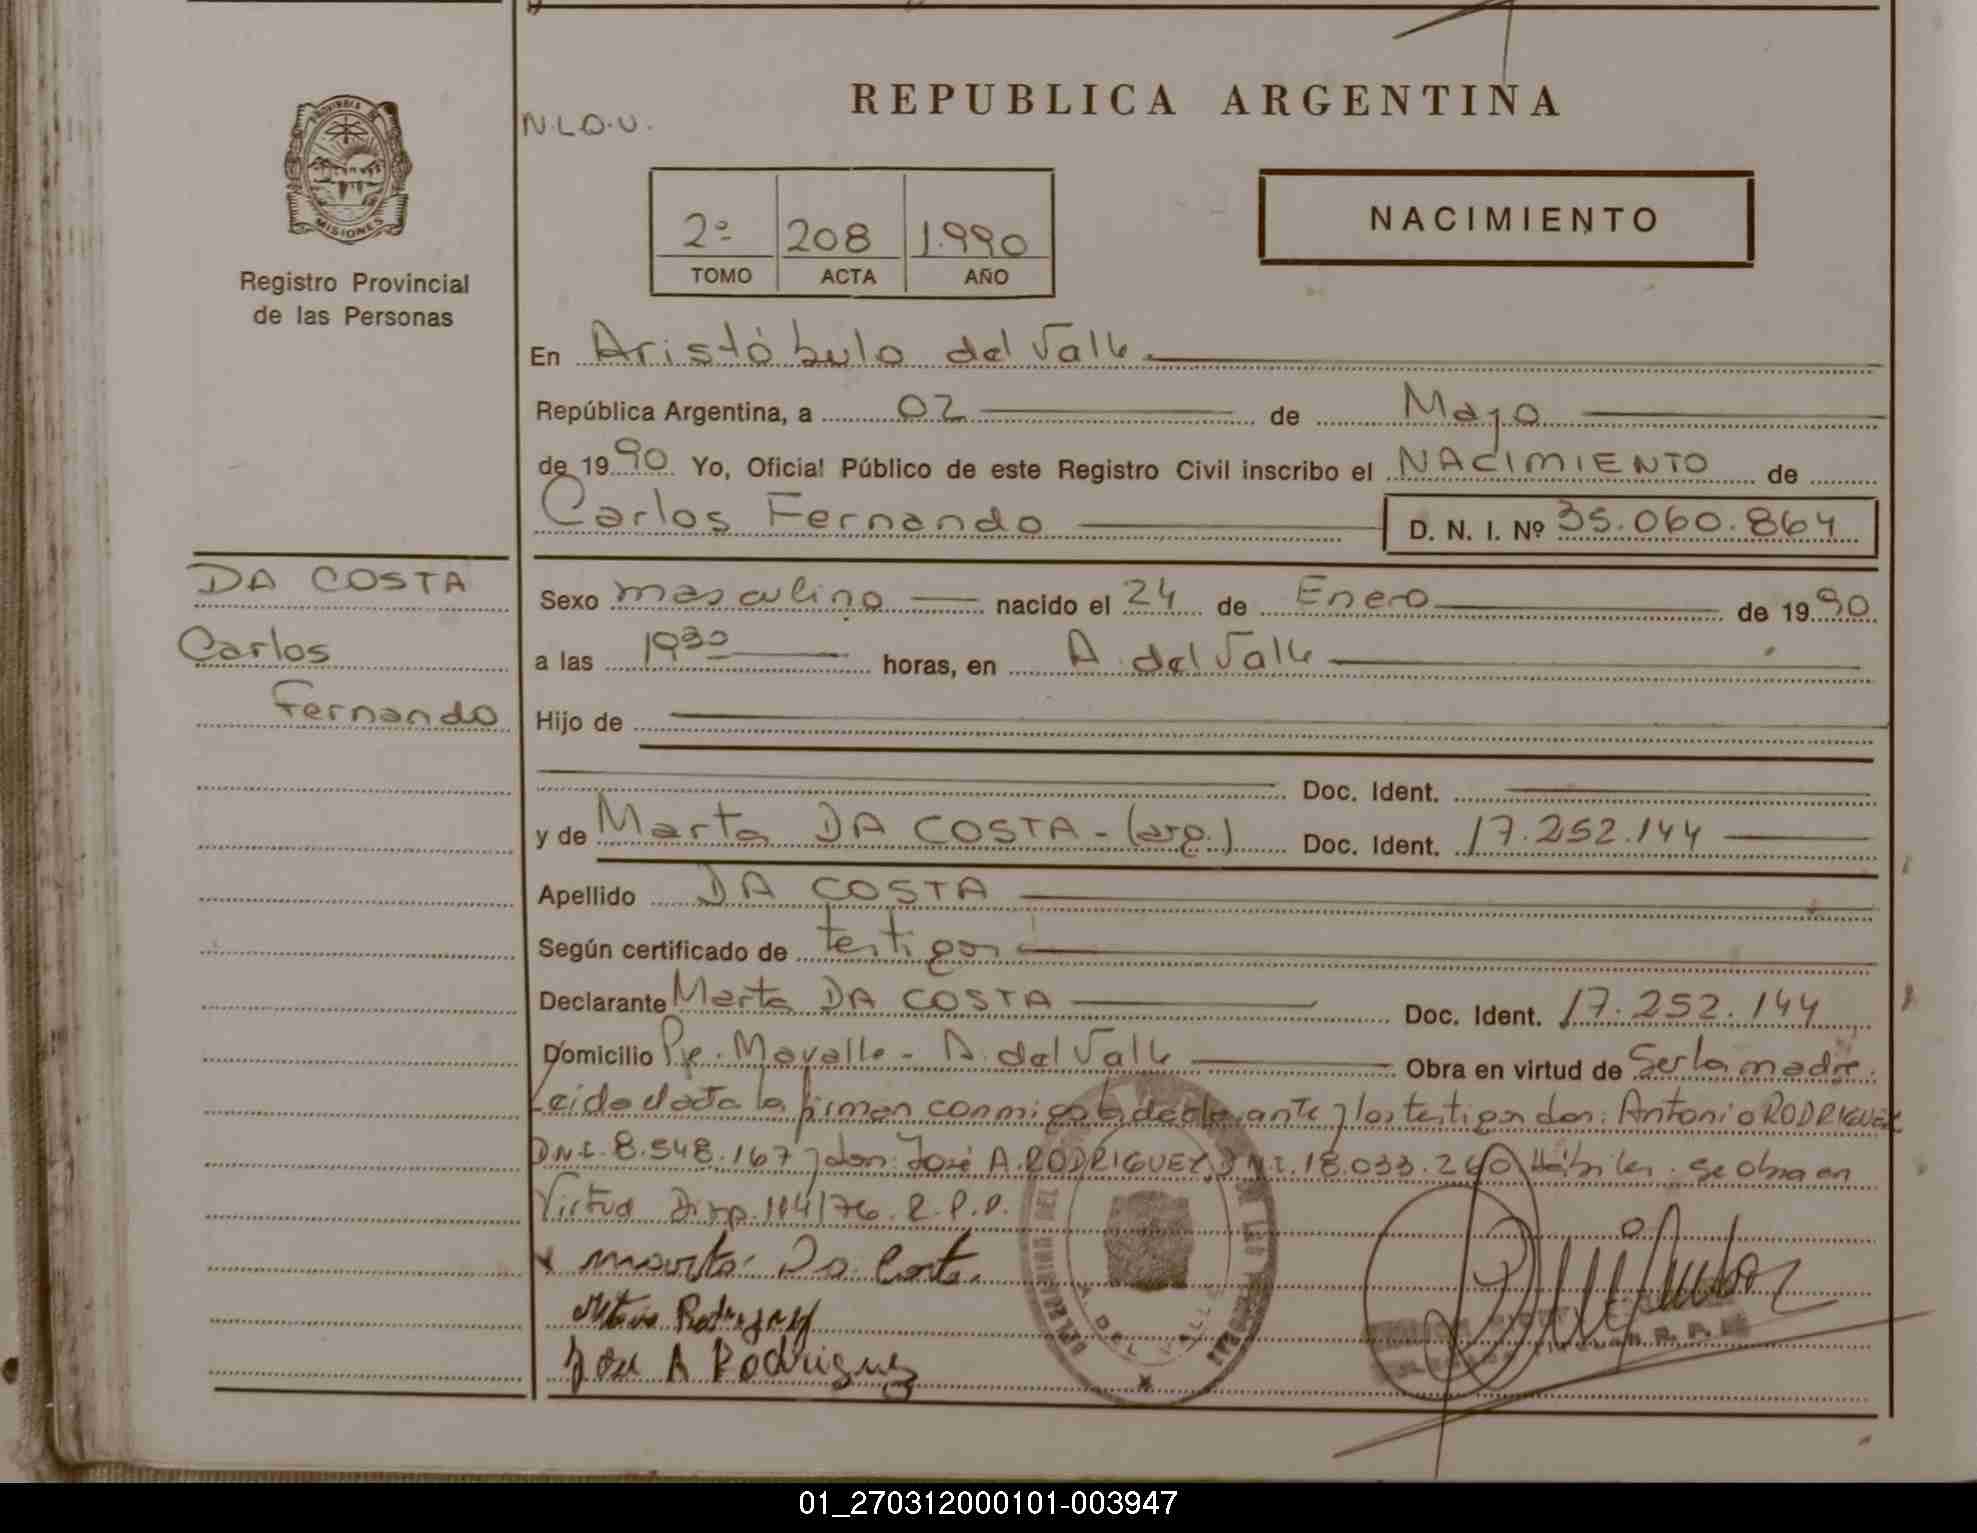 REPUBLICA ARGENTINA
N.L.O.U.
PROVINCIA DE
MISIONES
Registro Provincial
de las Personas
2º 208 1.990
TOMO ACTA AÑO
NACIMIENTO
En Aristóbulo del Valle
República Argentina, a 02 de Mayo
de 1990 Yo, Oficial Público de este Registro Civil inscribo el NACIMIENTO de
Carlos Fernando D. N. I. Nº 35.060.864
DA COSTA
Carlos
Fernando
Sexo masculino nacido el 24 de Enero de 1990
a las 19 30 horas, en A. del Valle
Hijo de
Doc. Ident.
y de Marta DA COSTA - (arg.) Doc. Ident. 17.252.144
Apellido DA COSTA
Según certificado de testigos
Declarante Marta DA COSTA Doc. Ident. 17.252.144
Domicilio Pje. Mavalle - A. del Valle Obra en virtud de Ser la madre.
Leida el acta la firman conmigo la declarante y los testigos don: Antonio RODRIGUEZ
D.N.I. 8.548.167 y don: José A. RODRIGUEZ D.N.I. 18.033.260 Hábiles. Se obra en
Virtud Disp. 104/76. R.P.P.
x Marta Da Costa
Rodriguez
José A Rodriguez
A. DEL VALLE
01_270312000101-003947